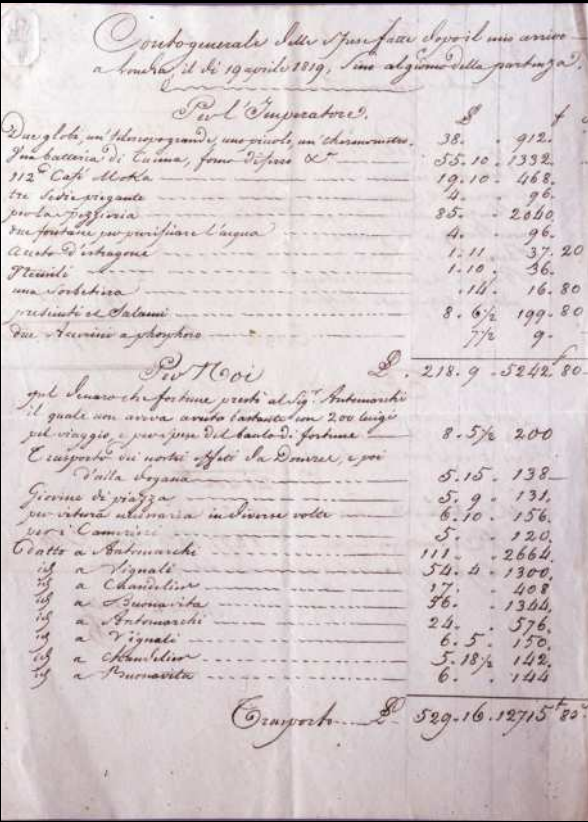 Conto generale delle spese fatte dopo il mio arrivo
a Londra, il di 19 aprile 1819, sino al giorno della partenza.
Per l'Imperatore. £ f
Due globi, un' telescopo grande, uno picolo, un' thermometro. 38. . 912.
Una batteria di Cucina, forno di ferro &a 55.10.1332.
112 Café Moka 19.10.468.
tre Sedie piegante 4. . 96.
per la 85. . 2040.
due fontane per purifiare l'acqua 4. . 96.
aceto d'estragone 1.11. 37.20
1.10. 36.
una Sorbetiera .14. 16.80
presciuti et Salami 8.6½ 199.80
due a phosphoro 7½ 9.
Per Noi £. 218.9.5242 f 80
pel denaro che fortune presti al Sigr. Antomarchi
il quale non aveva avuto bastante con 200 luigi
pel viaggio, e per spese del baulo di fortune 8.5½ 200
Trasporto dei nostri effeti da Douvre, e poi
d'alla dogana 5.15. 138
Giovine di piazza 5.9. 131.
per vitura in diverse volte 6.10. 156.
per i Camerieri 5. . 120.
E datto a Antomarchi 111. . 2664.
id a Vignali 54.4.1300.
id a Chandelier 17. . 408
id a Buonavita 56. . 1344.
id a Antomarchi 24. . 576.
id a Vignali 6.5. 150.
id a Chandelier 5.18½ 142.
id a Buonavita 6. . 144
Trasporto £ 529.16.12715 f 80